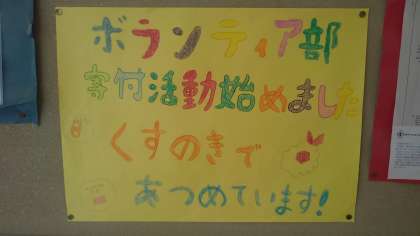 ボランティア部
寄付活動始めました
くすのきで
あつめています!